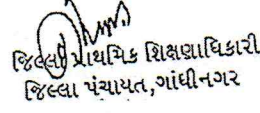 જિલ્લા પ્રાથમિક શિક્ષણાધિકારી
જિલ્લા પંચાયત,ગાંધીનગર